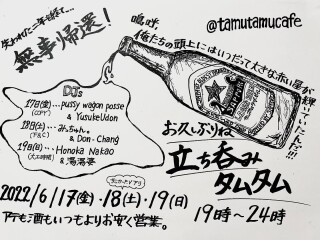 失われた二年を経て…
無事帰還！
嗚呼、
@tamutamucafe
俺たちの頭上にはいつだって大きな赤い星が輝いていたんだ!!!
DJ's
17日(金)… pussy wagon posse
& YusukeUdon
18日(土)… みっちゃん。
& Don-Chang
19日(日)… Honoka Nakao
& 湯湯婆
お久しぶりね
立ち呑み
タムタム
2022/6/17(金)・18(土)・19(日)
19時〜24時
酒もいつもよりお安く営業。